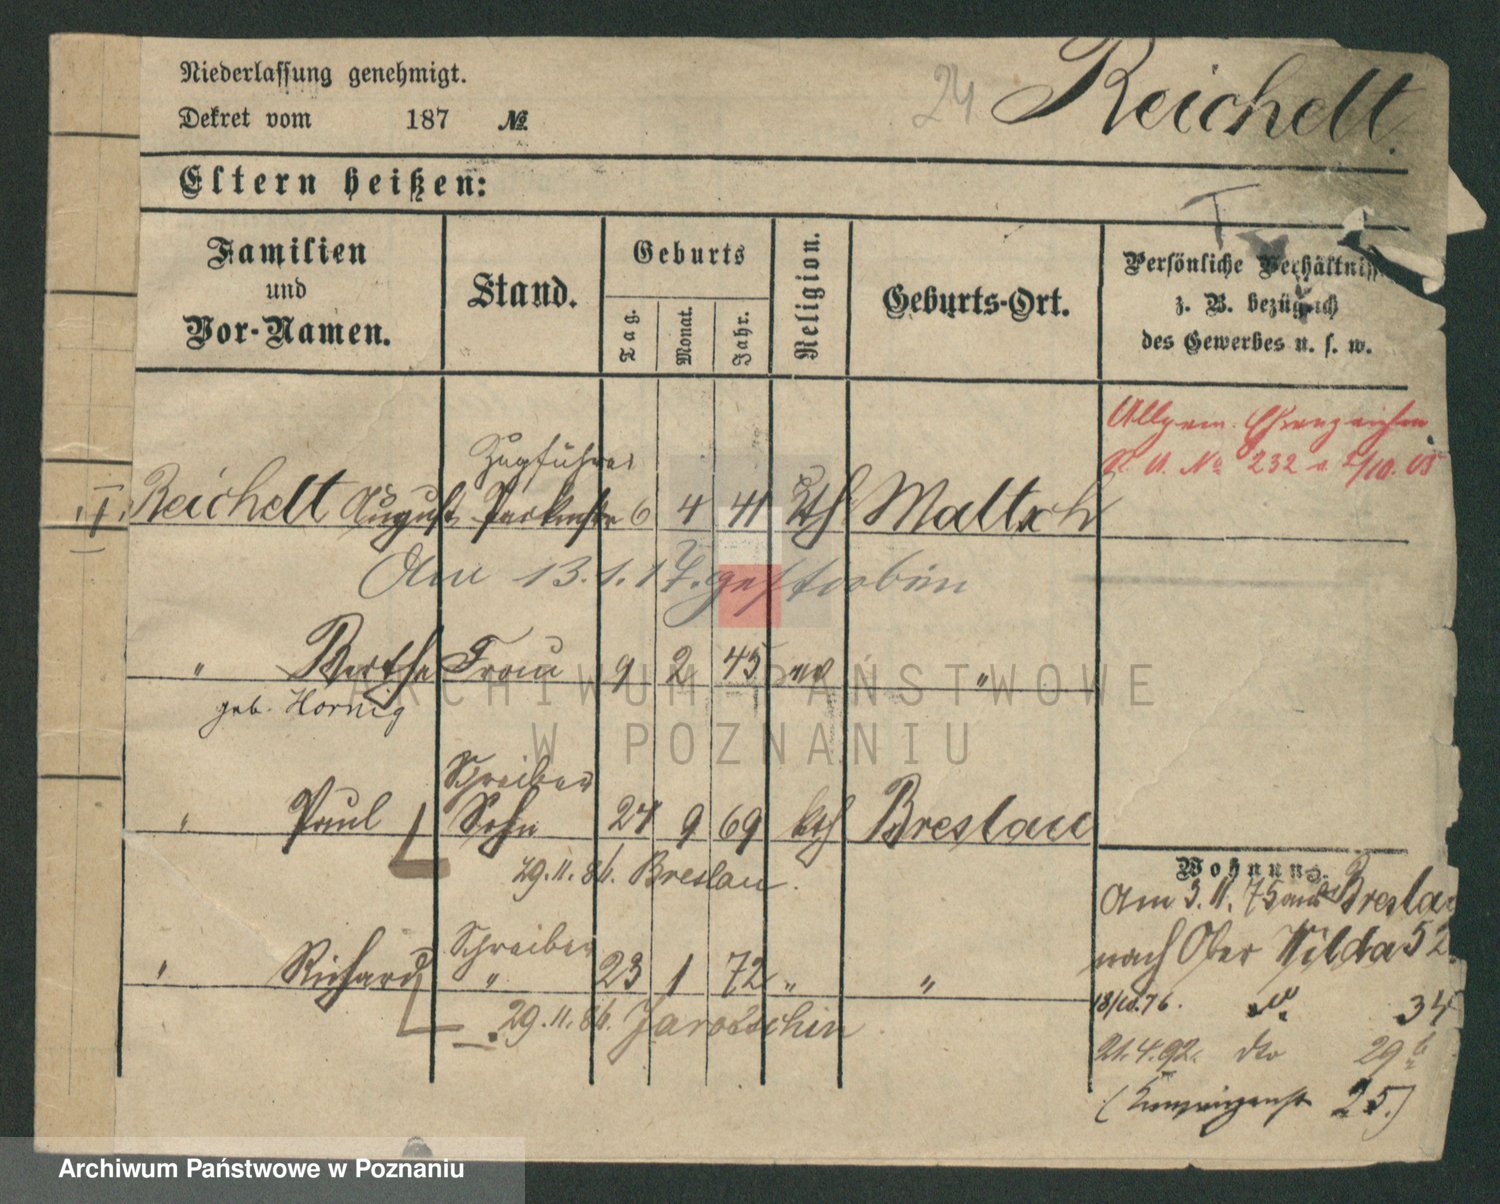 Niederlassung genehmigt.
Dekret vom 187 №
24 Reichelt.
Eltern heißen:
T
Familien und Vor-Namen.
Stand.
Geburts
Tag. Monat. Jahr.
Religion.
Geburts-Ort.
Persönliche Verhältniss
z. B. bezüglich
des Gewerbes u. s. w.
Allgem. Ehrenzeichen
No 232
Zugführer
I Reichelt August 6 4 41 kth Maltsch
Am 13.1.17. gestorben
" Bertha Frau 9 2 45 ev "
geb. Hornig
Schreiber
" Paul Sohn 24 9 69 kth Breslau
29.11.86. Breslau.
Schreiber
" Richard " 23 1 72 " "
29.11.86. Jarotschin
Wohnung.
Am 3.11.75 aus Breslau
nach Ober Wilda 52.
18/10.76. do 34
21.4.92. dto 29b
25.)
ARCHIWUM PAŃSTWOWE
W POZNANIU
Archiwum Państwowe w Poznaniu